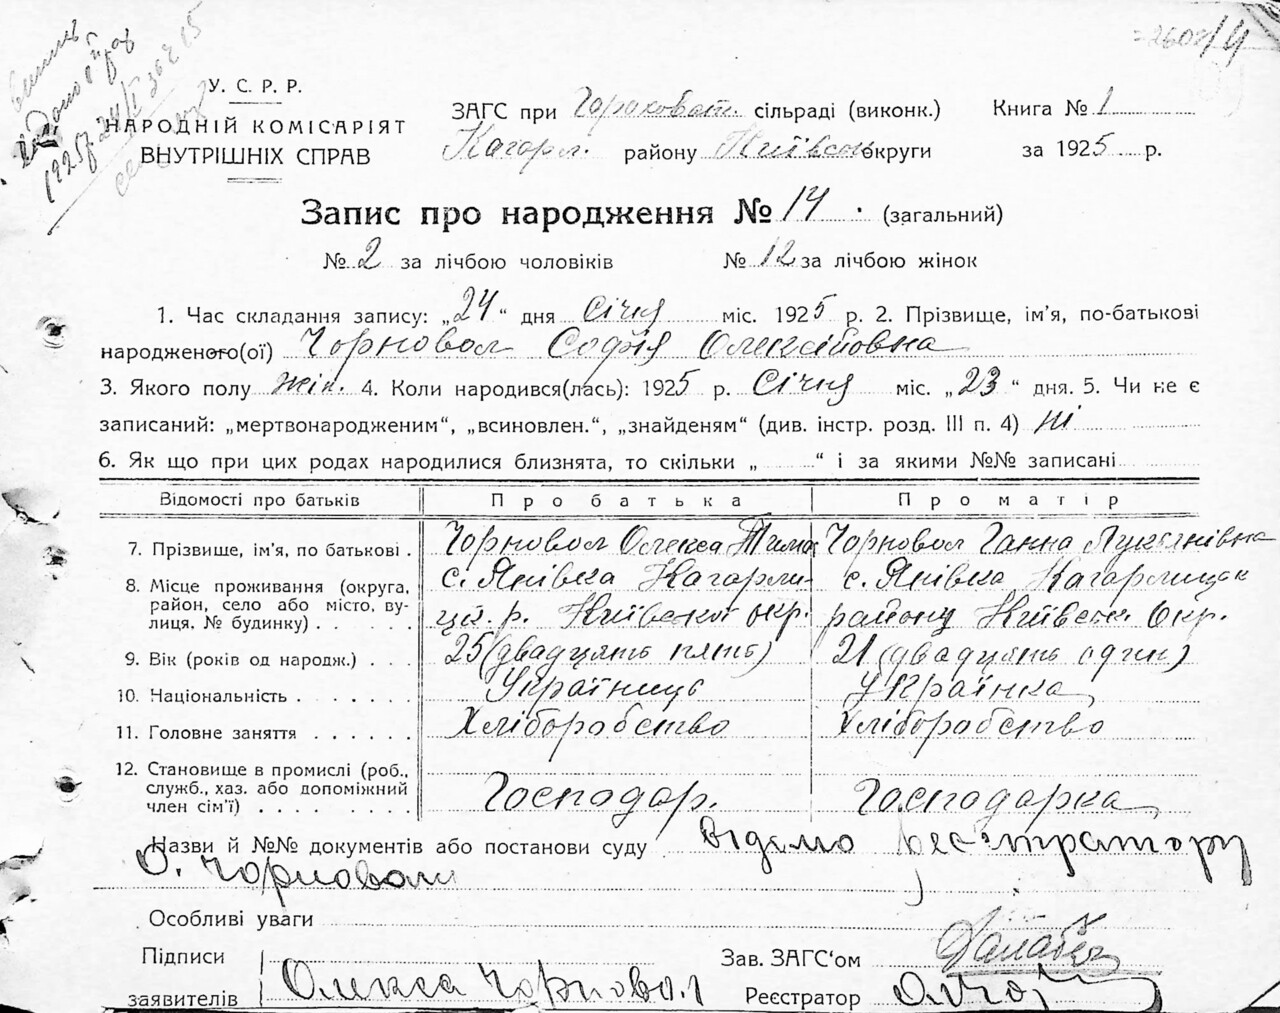 =2602/14
У. С. Р. Р.
НАРОДНІЙ КОМІСАРІЯТ
ВНУТРІШНІХ СПРАВ
ЗАГС при Гороховат. сільраді (виконк.)
Кагарл. району Київськ округи
Книга № 1
за 1925 р.
Запис про народження № 14. (загальний)
№ 2 за лічбою чоловіків № 12 за лічбою жінок
1. Час складання запису: „24“ дня січня міс. 1925 р. 2. Прізвище, ім'я, по-батькові
народженого(ої) Чорновол Софія Олексіївна
3. Якого полу жін. 4. Коли народився(лась): 1925 р. Січня міс. „23“ дня. 5. Чи не є
записаний: „мертвонародженим“, „всиновлен.“, „знайденям“ (див. інстр. розд. III п. 4) ні
6. Як що при цих родах народилися близнята, то скільки „ “ і за якими №№ записані
Відомості про батьків Про батька Про матір
7. Прізвище, ім'я, по батькові . Чорновол Олекса Тимо Чорновол Ганна Лукянівна
8. Місце проживання (округа, район, село або місто, вулиця, № будинку) с. Янівка Кагарли- с. Янівка Кагарлицьк
цк. р. Київської окр. району Київськ Окр.
9. Вік (років од народж.) . . . 25 (двадцять пять) 21 (двадцять один)
10. Національність . . . . . . . Українець Українка
11. Головне заняття . . . . . . Хліборобство Хліборобство
12. Становище в промислі (роб., служб., хаз. або допоміжний член сім'ї) . . . . . . . . Господар. Господарка
Назви й №№ документів або постанови суду Відомо реєстратору
О. Чорновол
Особливі уваги
Підписи
заявителів Олекса Чорновол
Зав. ЗАГС‘ом
Реєстратор